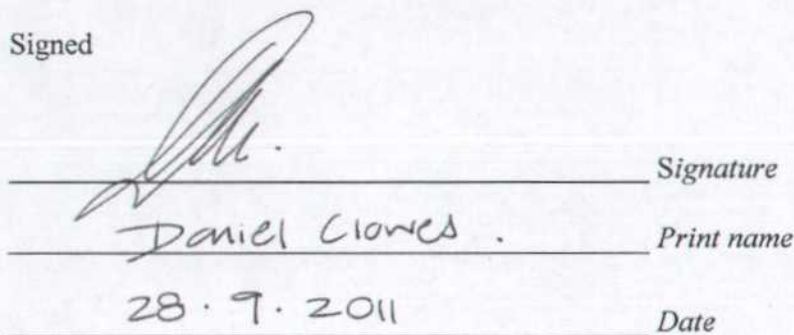 Signed
Signature
Daniel Clowes. Print name
28.9.2011 Date